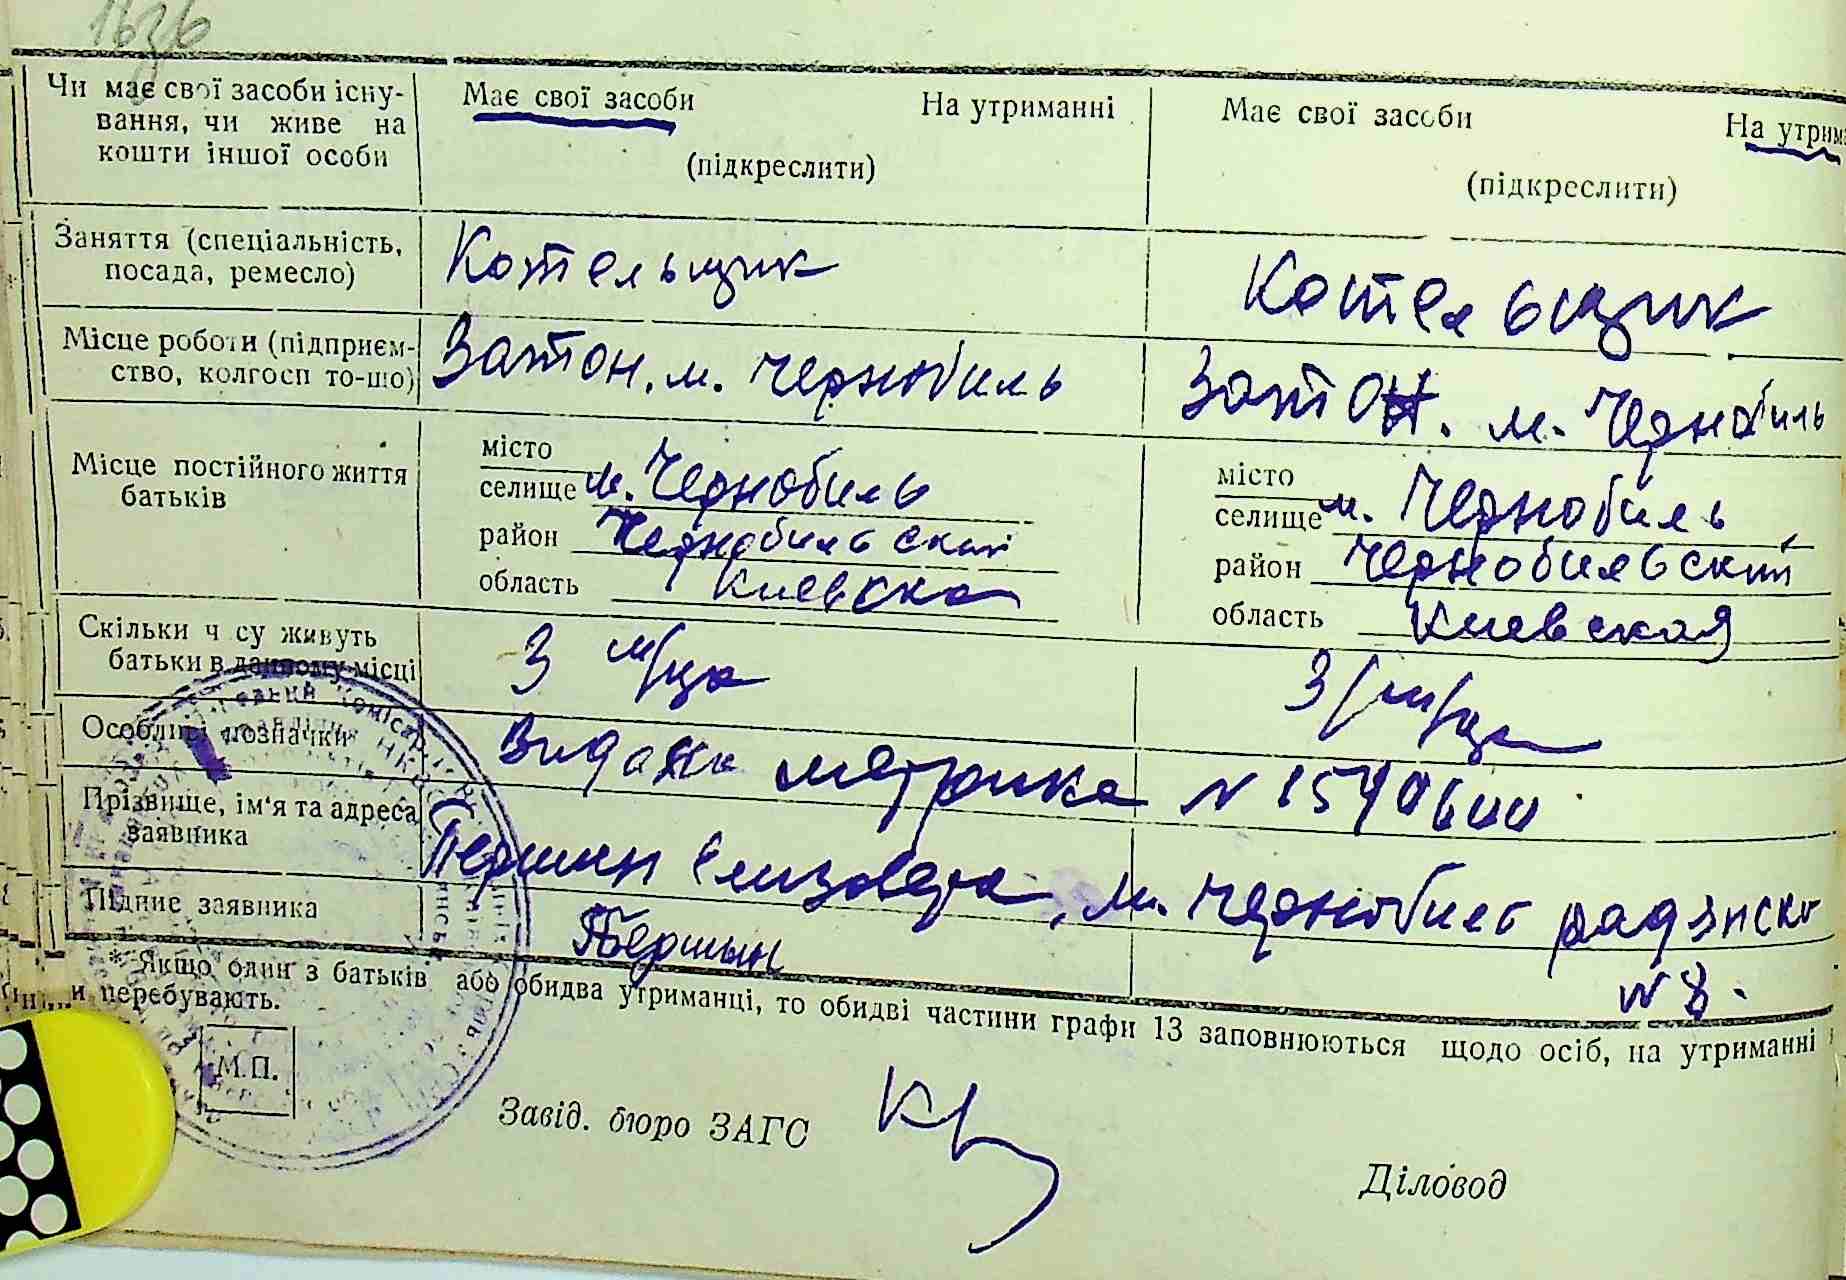 1626
Чи має свої засоби існу-
вання, чи живе на
кошти іншої особи
Має свої засоби На утриманні
(підкреслити)
Має свої засоби На утрим
(підкреслити)
Заняття (спеціальність,
посада, ремесло)
Котельщик
Котельщик
Місце роботи (підприєм-
ство, колгосп то-що)
Затон. м. Чернобиль
Затон. м. Чернобиль
Місце постійного життя
батьків
місто
селище м. Чернобиль
район Чернобильский
область Киевска
місто
селище м. Чернобиль
район Чернобильский
область Киевская
Скільки ч су живуть
батьки в данному місці
3 м/ця
3 м/ця
Особливі позначки
Видана метрика N
Прізвище, ім'я та адреса
заявника
Першин Елизавета, м. Чернобиль
N 8.
Підпис заявника
Першын
* Якщо один з батьків або обидва утриманці, то обидві частини графи 13 заповнюються щодо осіб, на утриманні
и перебувають.
М.П.
Завід. бюро ЗАГС
Діловод